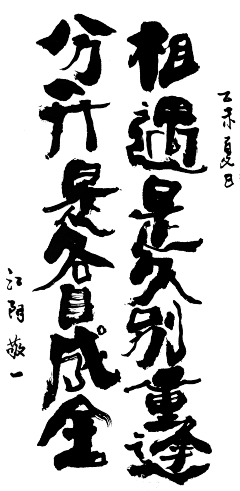 乙未夏日
相遇是久别重逢
分开是各自成全
江阴敬一